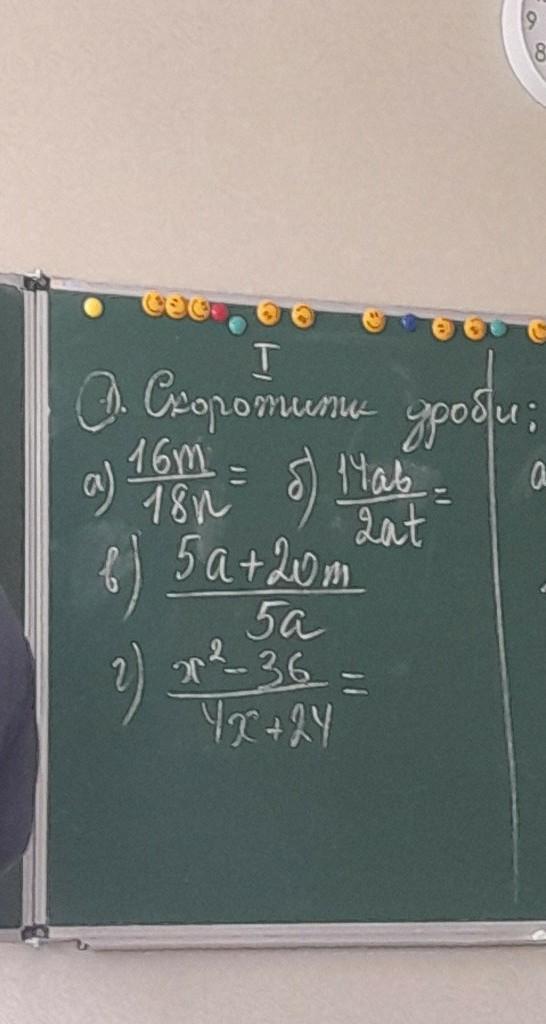 9
8
I
1. Скоротити дроби:
а) 16m/18n = б) 14ab/2at =
в) 5a+20m/5a
г) x²-36/4x+24 =